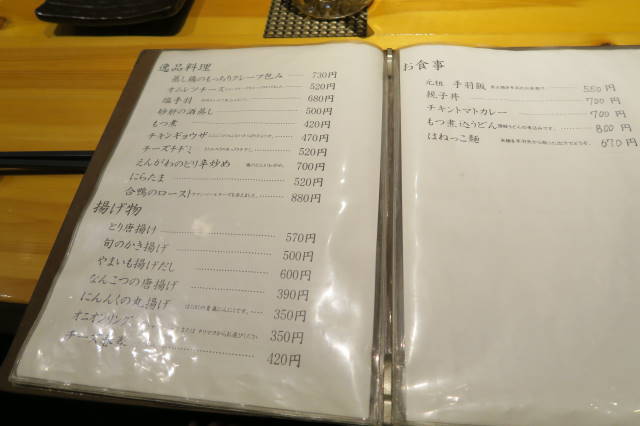 逸品料理
蒸し鶏のもっちりクレープ包み 730円
オムレツチーズ 520円
塩手羽 680円
の酒蒸し 500円
もつ煮 420円
チキンギョウザ 470円
チーズチヂミ 520円
えんがわのピリ辛炒め 700円
にらたま 520円
合鴨のロースト 880円
揚げ物
とり唐揚げ 570円
旬のかき揚げ 500円
やまいも揚げだし 600円
なんこつの唐揚げ 390円
にんにくの丸揚げ 350円
オニオンリング 350円
チーズ 420円
お食事
元祖 手羽飯 550円
親子丼 700円
チキントマトカレー 700円
もつ煮込うどん 800円
はねっこ麺 670円